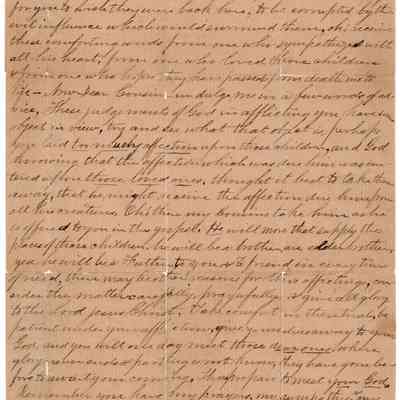 for you to wish they were back here, to be corrupted by the
evil influence which would surround them, oh! receive
these comforting words from one who sympathizes with
all his heart, from one who loved those children
& from one who hopes they have passed from death unto
life - Now dear Cousin indulge me in a few words of ad-
vice, These judgements of God in afflicting you have an
object in view, try and see what that object is, perhaps
you laid too much affection upon those children, and God
knowing that the affection which was due him was cen-
tered upon those loved ones, thought it best to take them
away, that he might receive the affection due him from
all his creatures. Oh! then my Cousin take him as he
is offered to you in the gospel. He will more than supply the
places of those children. he will be a brother, an elder brother,
yea he will be a Father to you & a friend in every time
of need, there may be other reasons for this affliction, con-
sider the matter carefully, prayfully, & give all glory
to the Lord Jesus Christ. Take comfort in the thought, be
patient under your affliction, give yourself away to your
God, and you will one day meet those dear ones where
glory never ends & parting is not known, they have gone be-
fore to await your coming. Then prepare to meet your God.
Remember you have my prayers, my sympathy, my